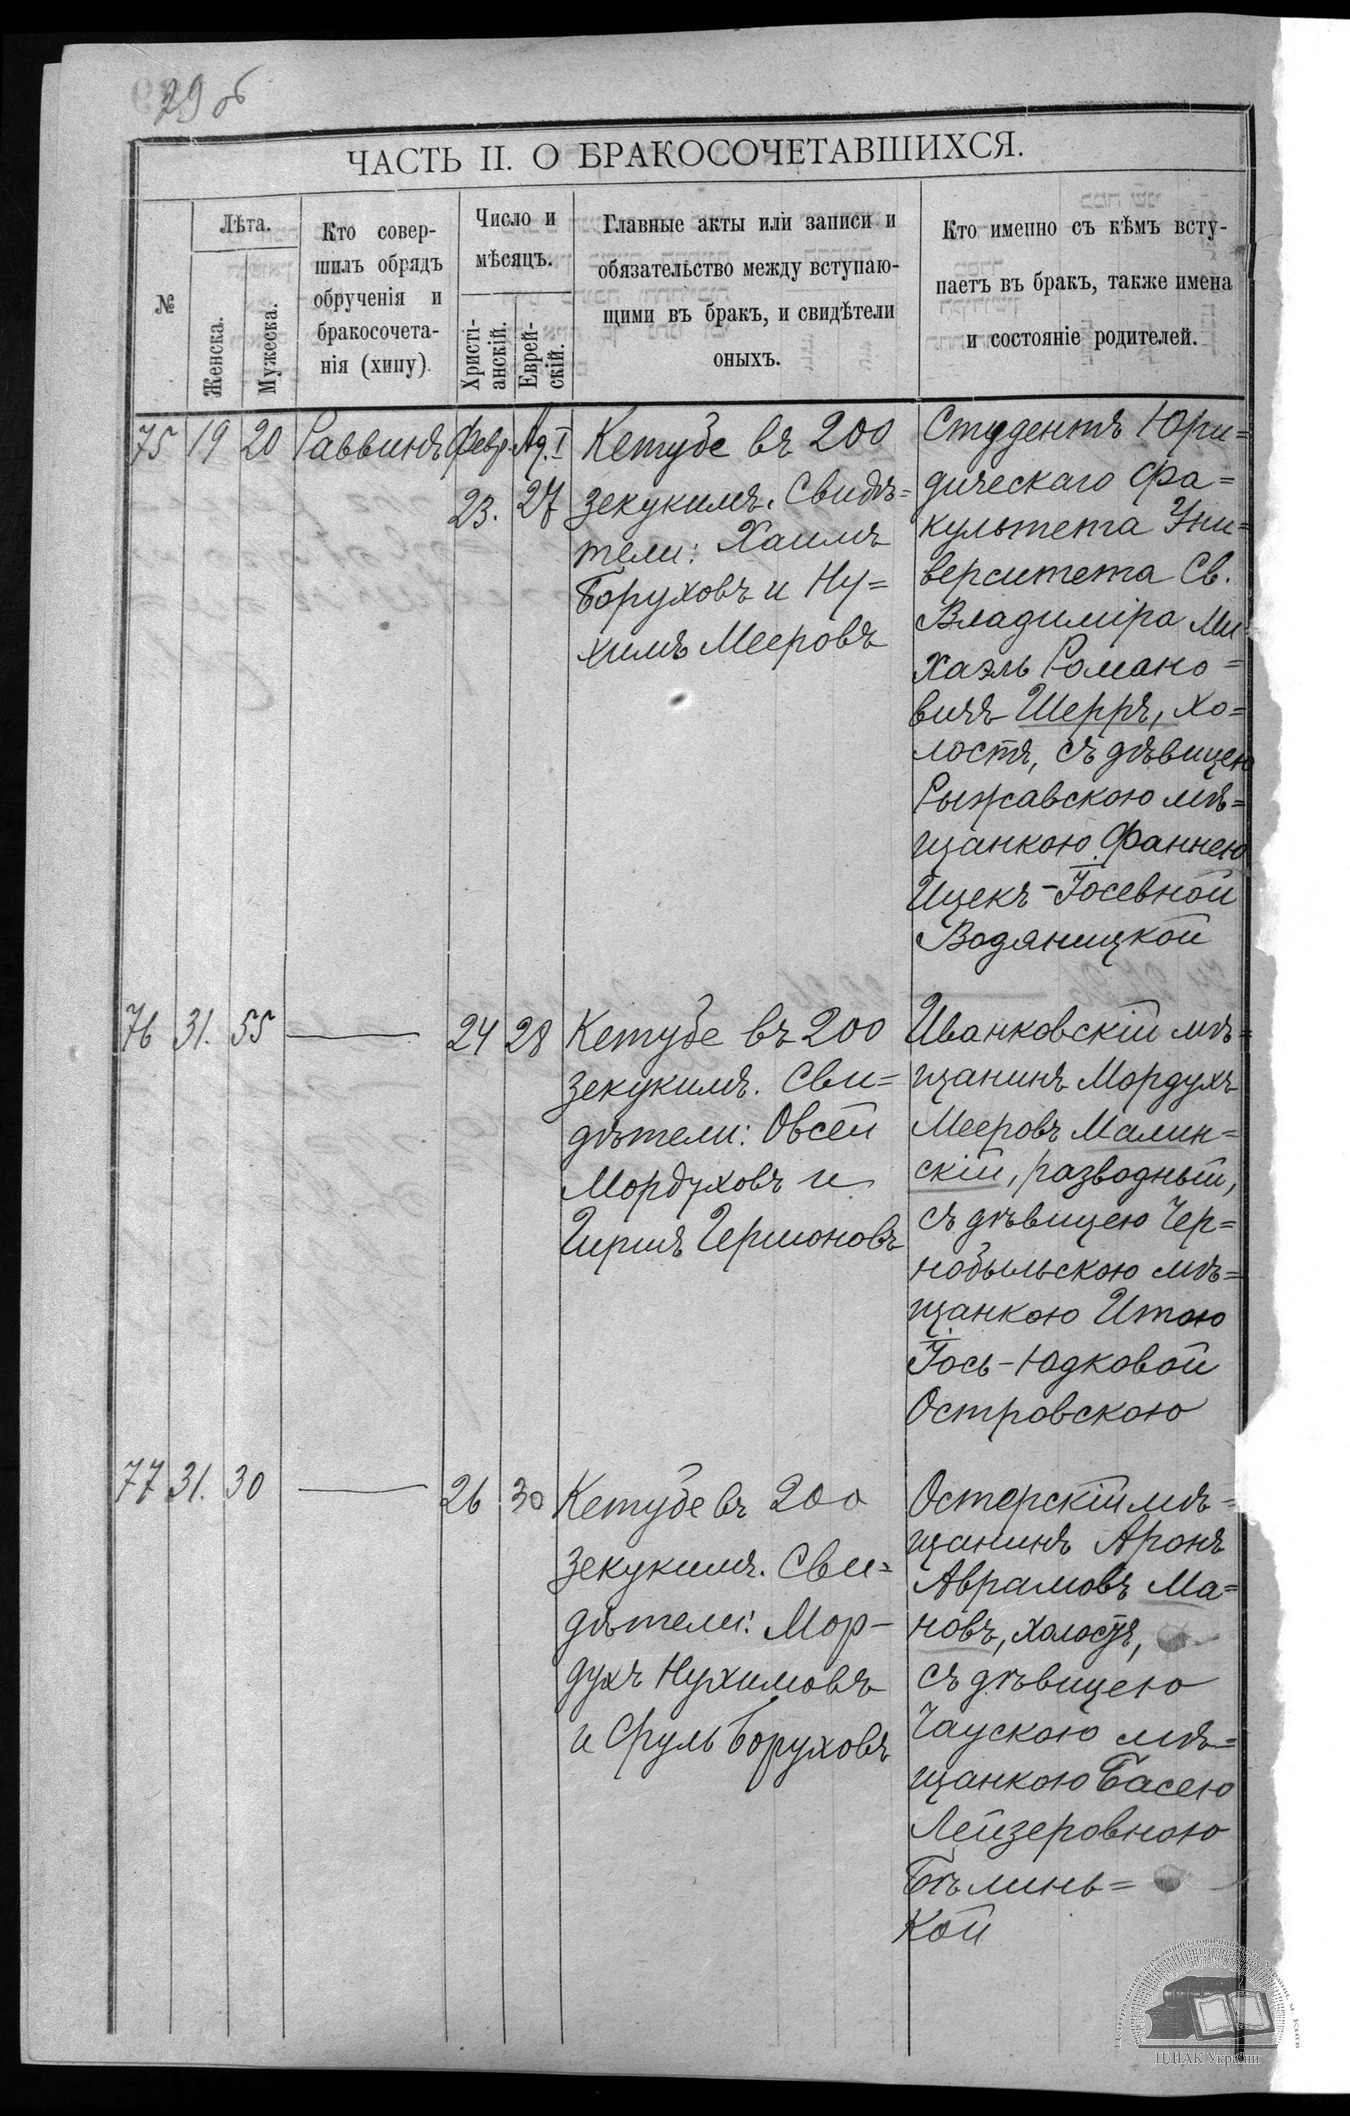 29 об
ЧАСТЬ II. О БРАКОСОЧЕТАВШИХСЯ.
№
Лѣта.
Женска.
Мужеска.
Кто совер-
шилъ обрядъ
обрученія и
бракосочета-
нія (хипу)
Число и
мѣсяцъ.
Христі-
анскій.
Еврей-
скій.
Главные акты или записи и
обязательство между вступаю-
щими въ бракъ, и свидѣтели
оныхъ.
Кто именно съ кѣмъ всту-
паетъ въ бракъ, также имена
и состояніе родителей.
75 19 20 Раввинъ Февр. Ад. I
23. 27
Кетубе въ 200
зекукимъ. Свидѣ=
тели: Хаимъ
Боруховъ и Ну=
химъ Мееровъ
Студентъ Юри=
дическаго Фа=
культета Уни=
верситета Св.
Владиміра Ми
хаэль Романо=
вичъ Шерръ, хо=
лостъ, съ дѣвицею
Рыжавскою мѣ=
щанкою Фаннею
Ицекъ-Іосевной
Водяницкой
76 31. 55 — 24 28
Кетубе въ 200
зекукимъ. Сви=
дѣтели: Овсей
Мордуховъ и
Гиршъ Гершоновъ
Иванковскій мѣ=
щанинъ Мордухъ
Мееровъ Малин=
скій, разводный,
съ дѣвицею Чер=
нобыльскою мѣ=
щанкою Итою
Іось-Юдковой
Островскою
77 31. 30 — 26 30
Кетубе въ 200
зекукимъ. Сви=
дѣтели: Мор-
духъ Нухимовъ
и Сруль Боруховъ
Остерскій мѣ=
щанинъ Аронъ
Аврамовъ Ма=
новъ, холостъ,
съ дѣвицею
Чаускою мѣ=
щанкою Басею
Лейзеровною
Бѣлинь=
кой
ЦДІАК України